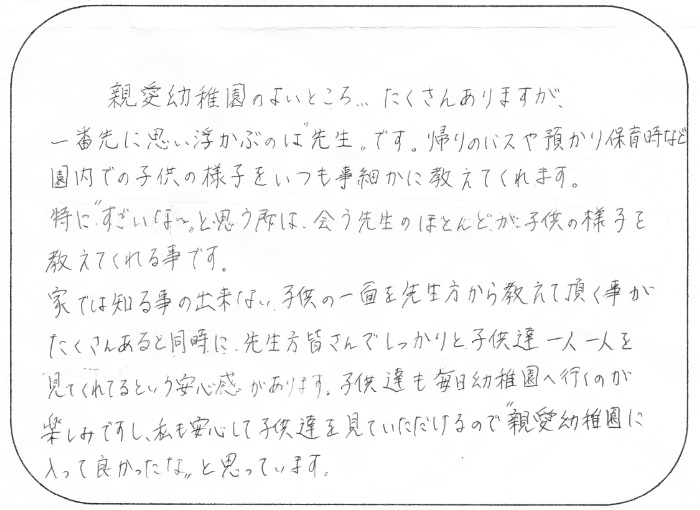 親愛幼稚園のよいところ… たくさんありますが、
一番先に思い浮かぶのは"先生"です。帰りのバスや預かり保育時など
園内での子供の様子をいつも事細かに教えてくれます。
特に"すごいな～"と思う所は、会う先生のほとんどが子供の様子を
教えてくれる事です。
家では知る事の出来ない、子供の一面を先生方から教えて頂く事が
たくさんあると同時に、先生方皆さんでしっかりと子供達一人一人を
見てくれてるという安心感があります。子供達も毎日幼稚園へ行くのが
楽しみですし、私も安心して子供達を見ていただけるので"親愛幼稚園に
入って良かったな"と思っています。